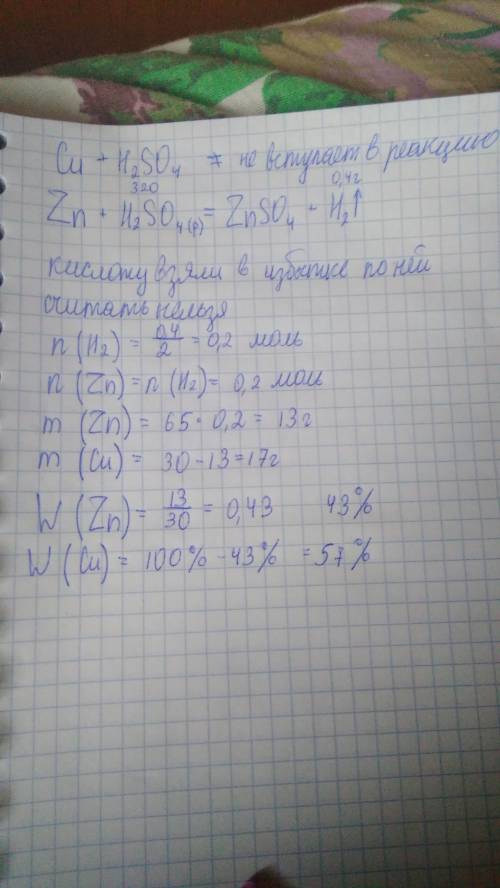 Cu + H₂SO₄ ≠ не вступает в реакцию
320 0,4г
Zn + H₂SO₄(р) = ZnSO₄ + H₂↑
кислоту взяли в избытке по ней
считать нельзя
n (H₂) = 0,4/2 = 0,2 моль
n (Zn) = n (H₂) = 0,2 моль
m (Zn) = 65 · 0,2 = 13г
m (Cu) = 30 - 13 = 17г
W (Zn) = 13/30 = 0,43 43%
W (Cu) = 100% - 43% = 57%